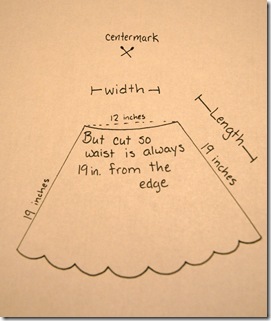 centermark
width
12 inches
Length
19 inches
19 inches
But cut so
waist is always
19 in. from the
edge